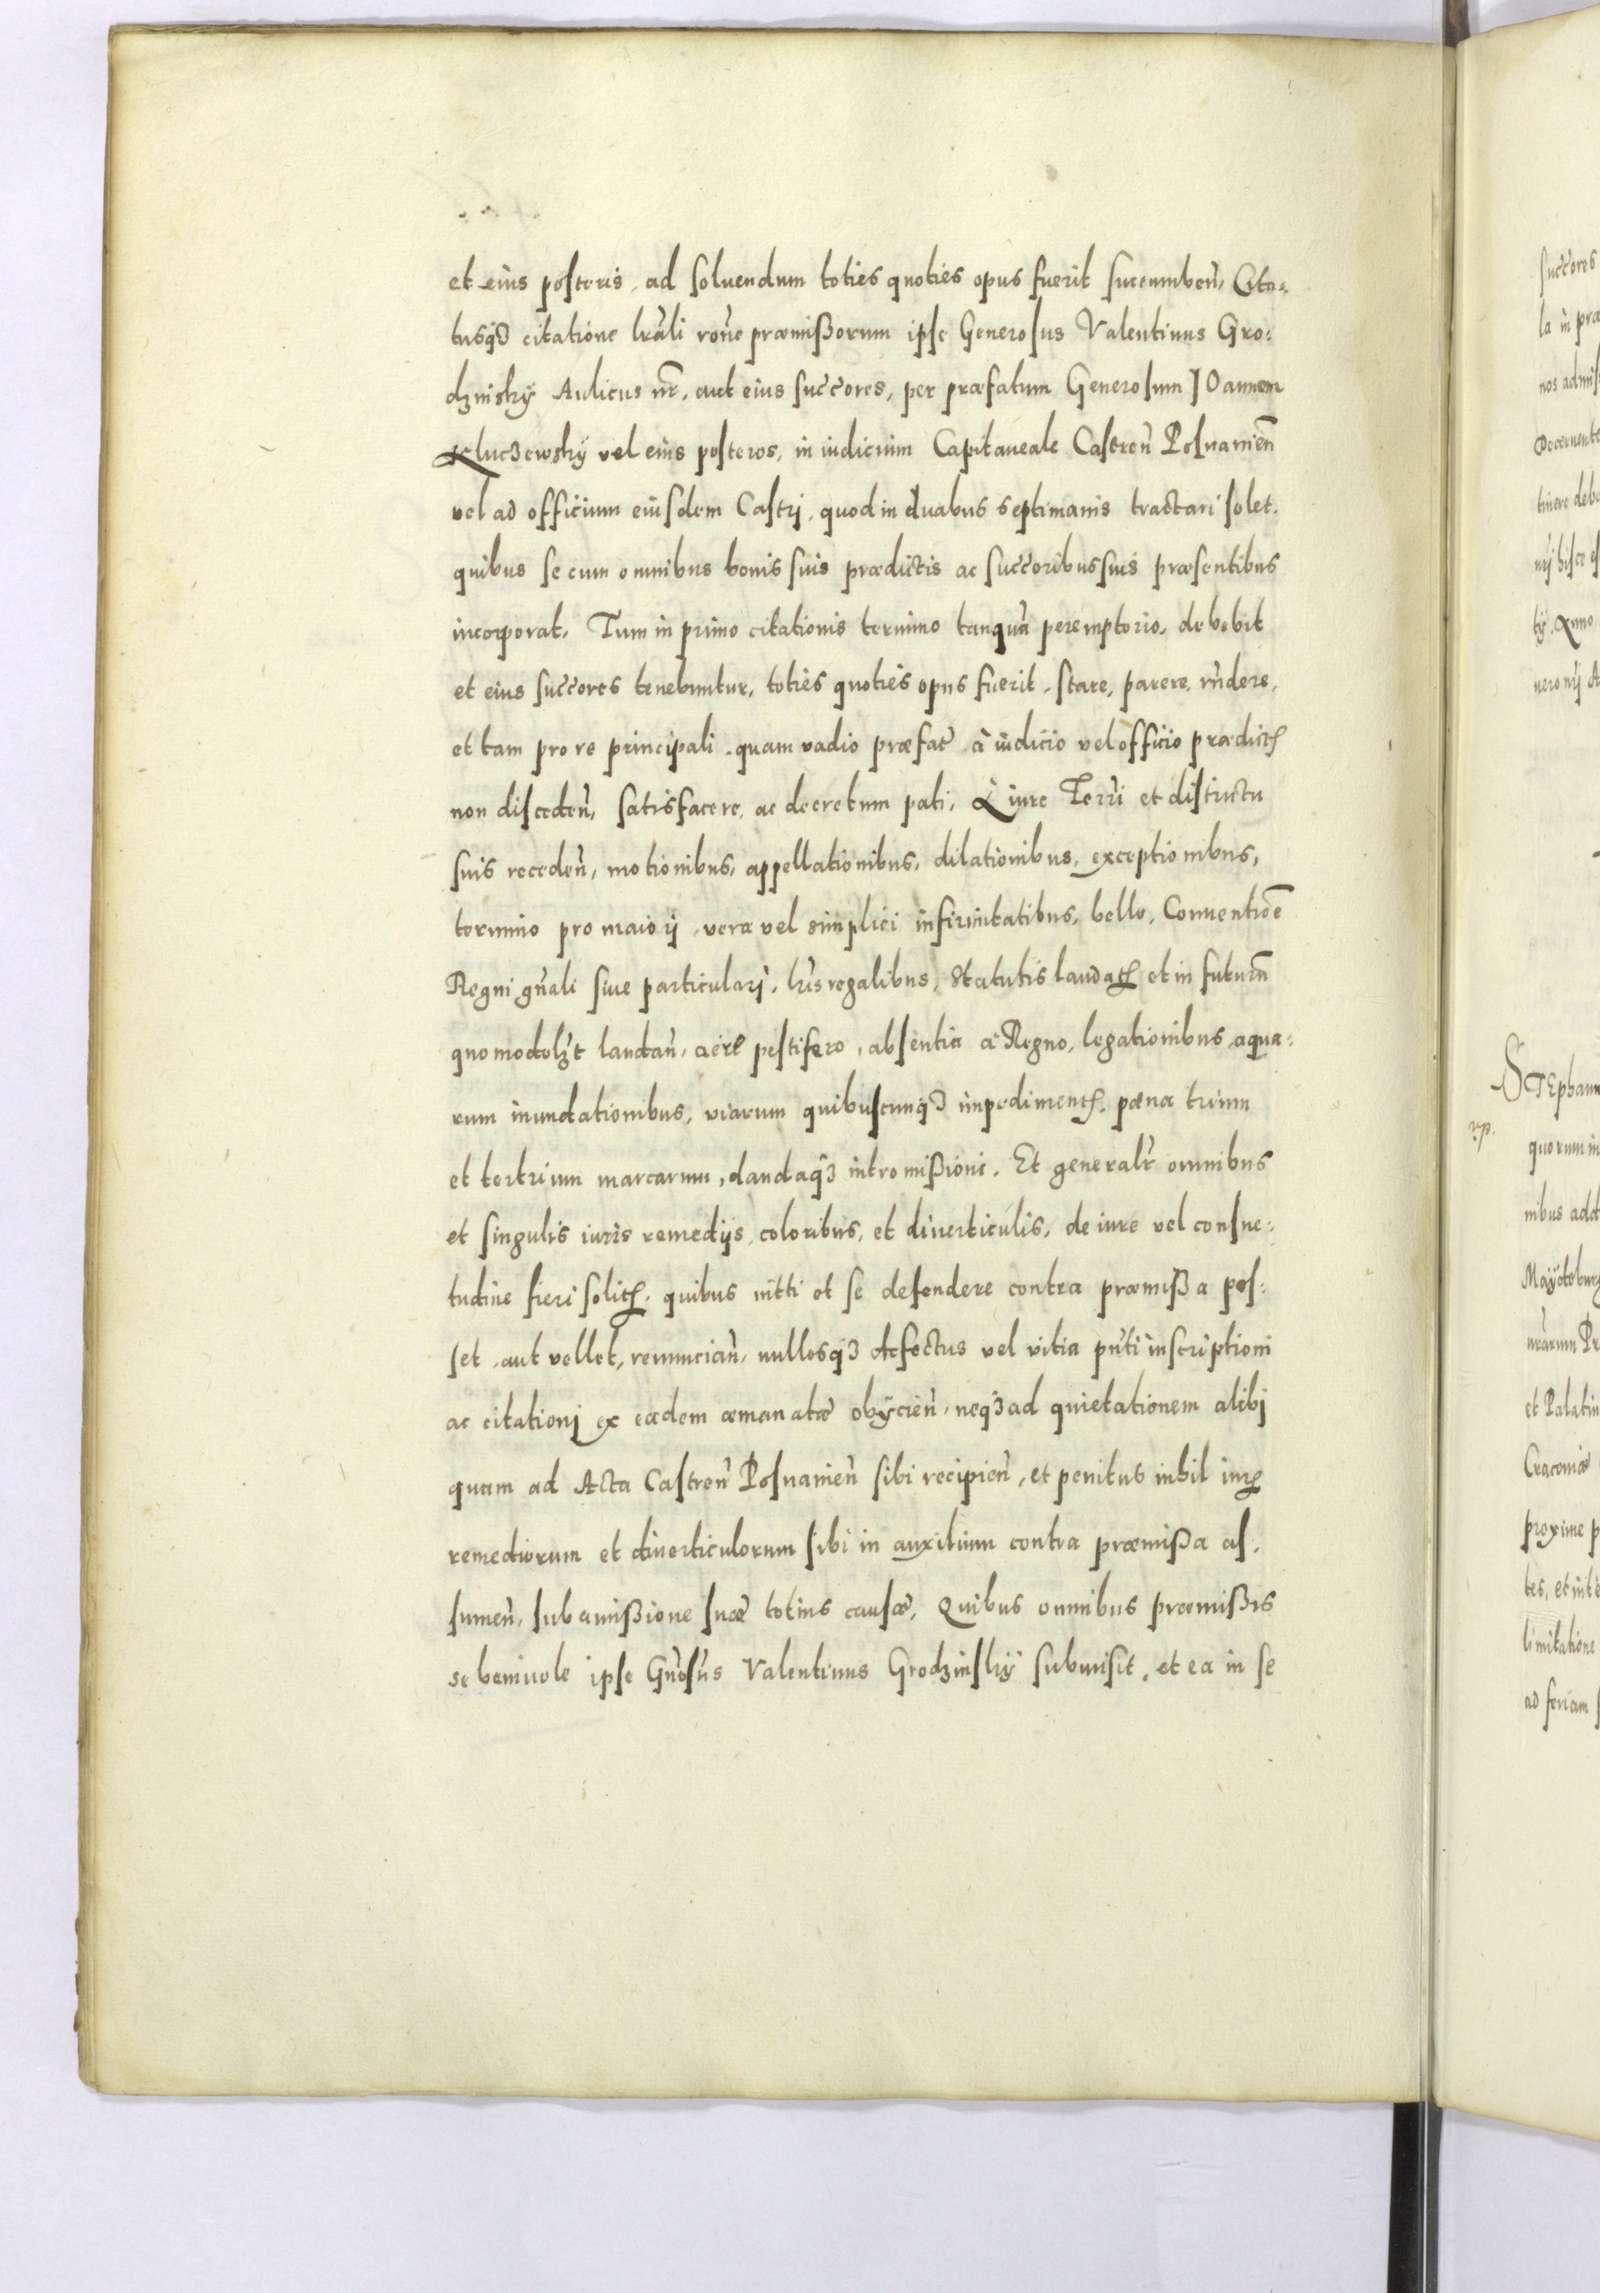 et eius posteris, ad soluendum toties quoties opus fuerit succumben̄, Cita-
tusq3 citatione lr̄ali ron̄e præmißorum ipse Generosus Valentinus Gro:
dzinskÿ Aulicus nr̄, aut eius succ̄ores, per præfatum Generosum IOannem
Kluczewskÿ vel eius posteros, in iudicium Capitaneale Castren̄ Posnanien̄
vel ad officium eiusdem Castri, quod in duabus septimanis tractari solet.
quibus se cum omnibus bonis suis prædictis ac succ̄oribus suis præsentibus
incorporat. Tum in primo citationis termino tanquā peremptorio, debebit
et eius succ̄ores tenebuntur, toties quoties opus fuerit, stare, parere, rn̄dere,
et tam pro re principali, quam vadio præfat̄ à iudicio vel officio prædict
non disceden̄, satisfacere, ac decretum pati, A iure Terrī et districtu
suis receden̄, motionibus, appellationibus, dilationibus, exceptionibus,
termino pro maiori, vera vel simplici infirmitatibus, bello, Conuentioē
Regni gn̄ali siue particulari, lr̄is regalibus, Statutis laudat et in futurū
quomodolz̄t laudan̄, aere pestifero, absentia à Regno, legationibus, aqua:
rum inundationibus, viarum quibuscunq3 impediment, pœna trium
et tertrium marcarum, dandaq3 intromißione. Et generalr̄ omnibus
et singulis iuris remedijs, coloribus, et diuerticulis, de iure vel consue:
tudine fieri solit, quibus niti et se defendere contra præmißa pos:
set aut vellet, renuncian̄, nullosq3 defectus vel vitia pn̄ti inscriptioni
ac citationi ex eadem æmanatæ obÿcien̄, neq3 ad quietationem alibi
quam ad Acta Castren̄ Posnanien̄ sibi recipien̄, et penitus nihil iur
remediorum et diuerticulorum sibi in auxilium contra præmißa as,
sumen̄, sub amißione suæ totius causæ, Quibus omnibus præmißis
se beniuole ipse Gn̄osus Valentinus Grodzinskÿ submisit, et ea in se
succ̄ores
la in præ
nos admis
Decernente
tinere deb
tÿ. Anno
STEphanu
quorum in
nibus add
et Palatin
Cracouiæ
proxime p
tes, et
limitatione
ad feriam